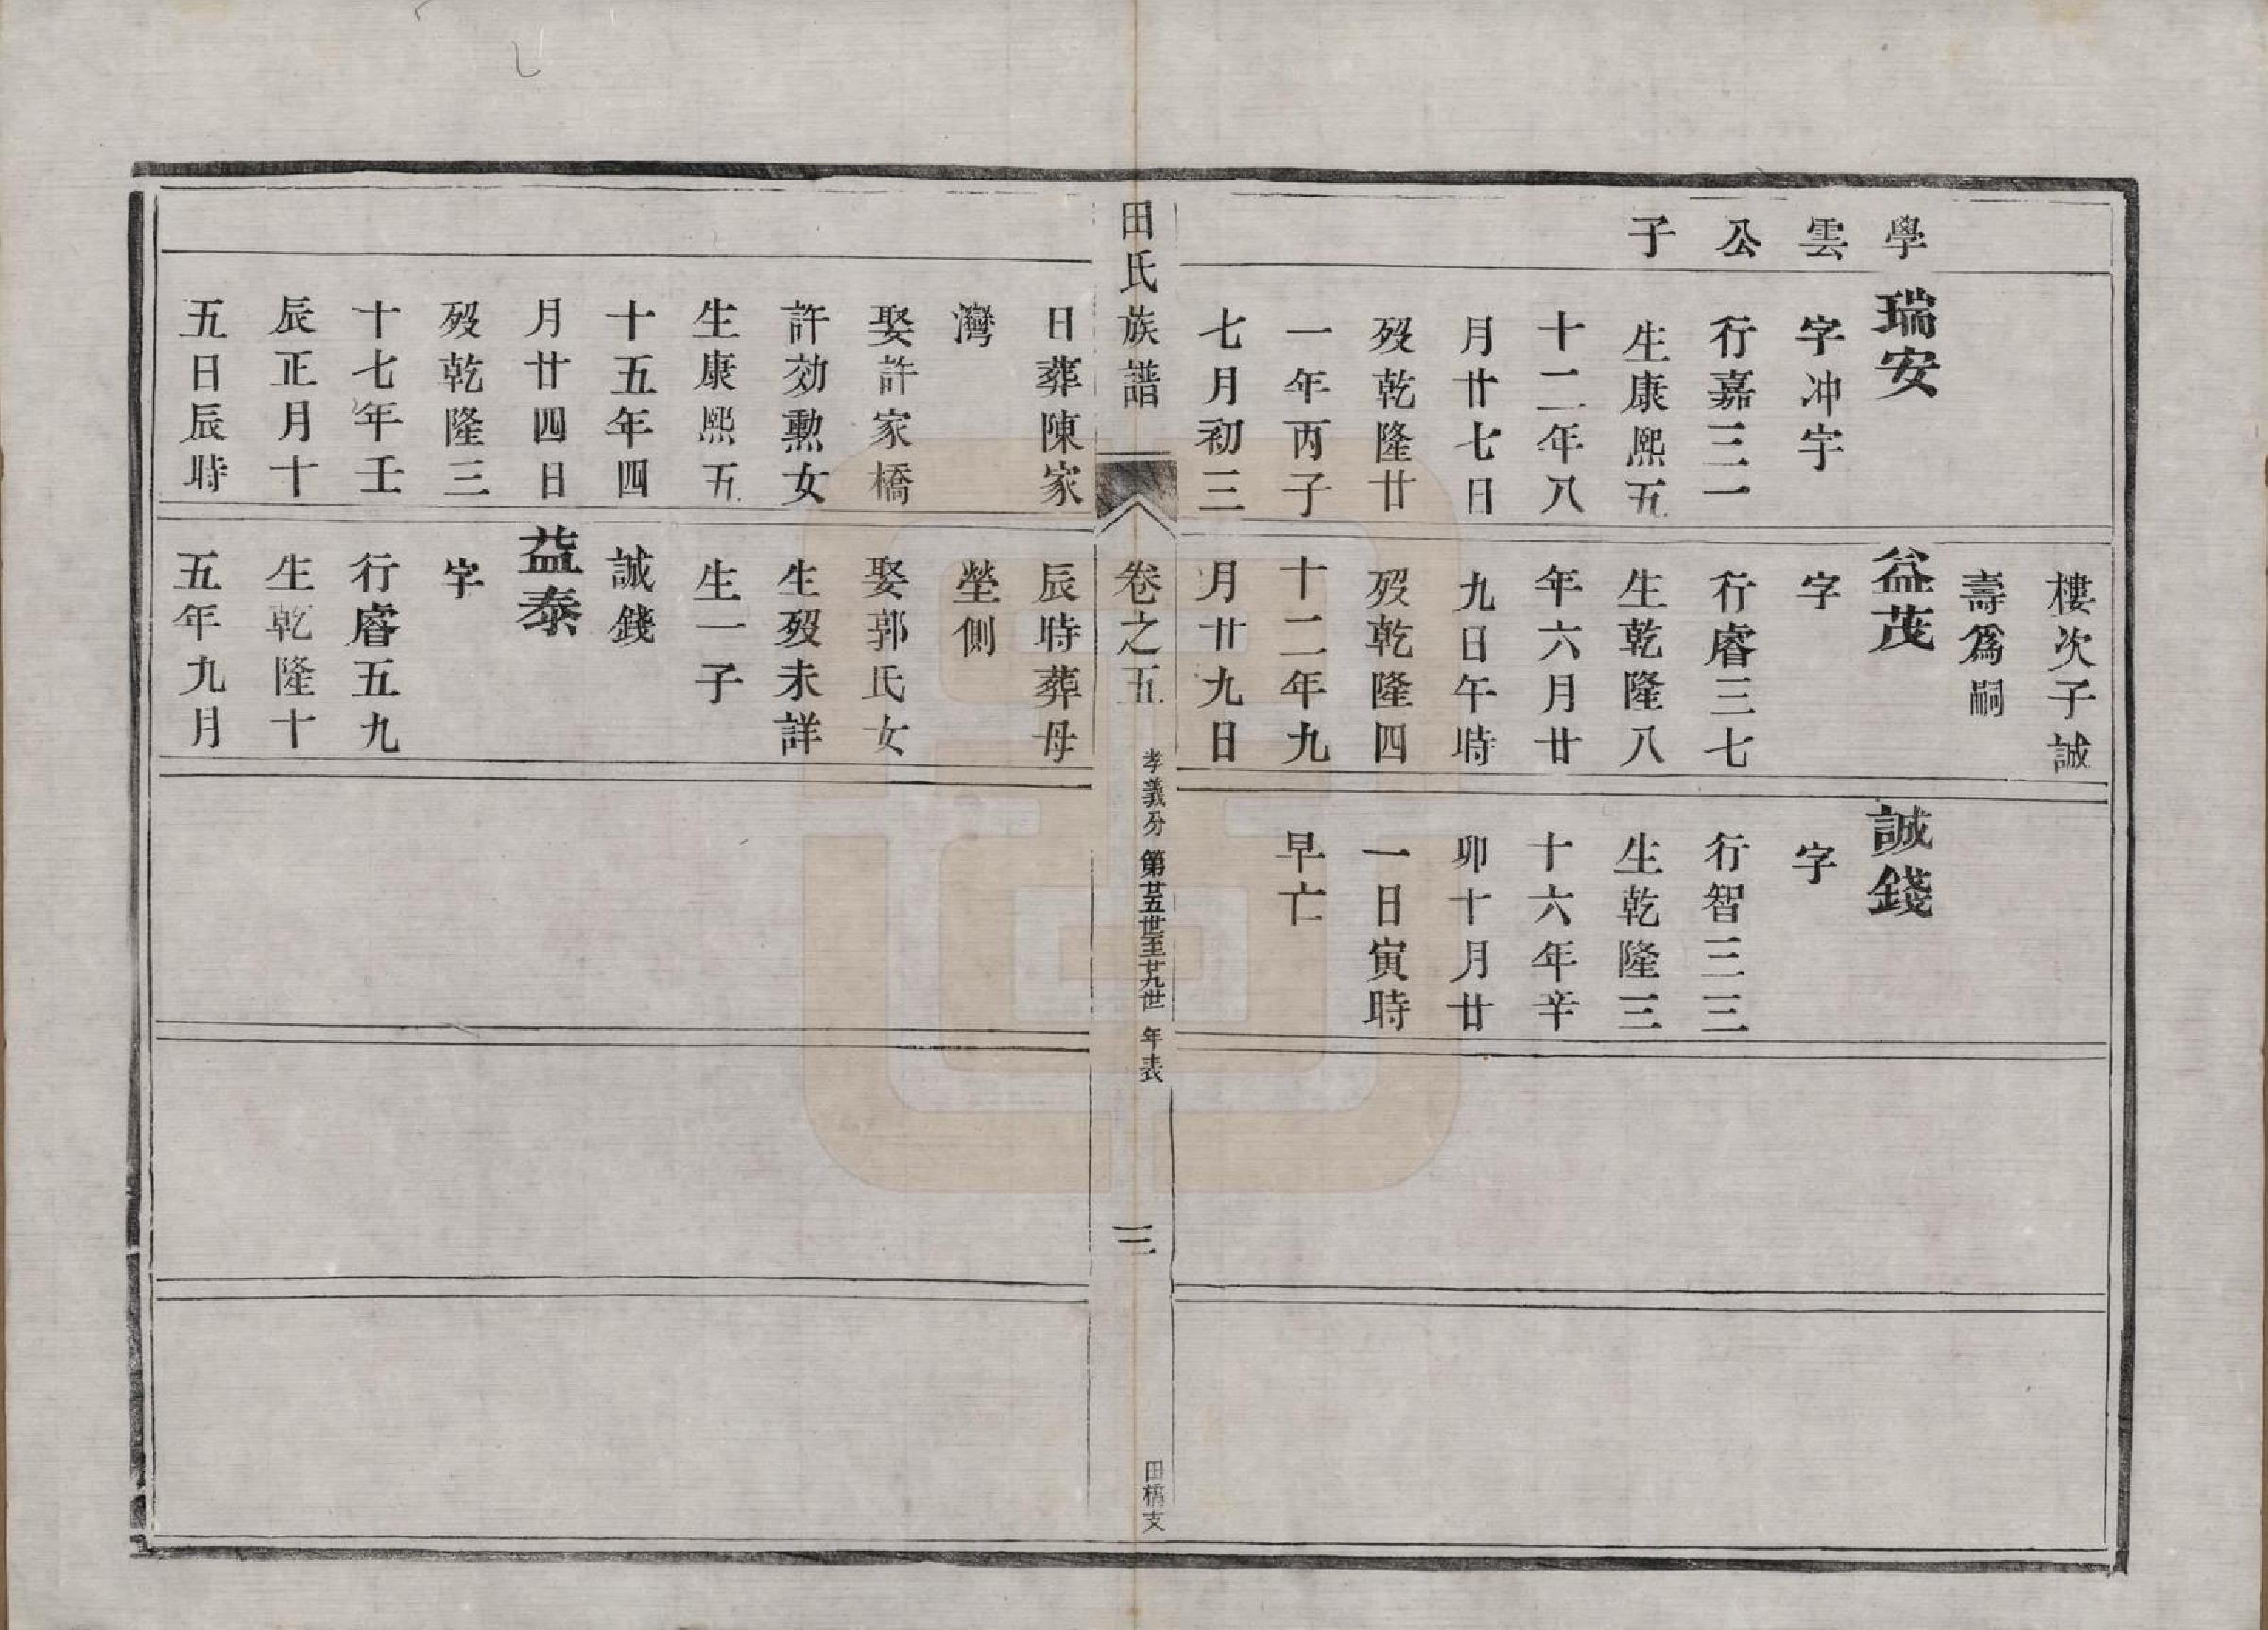 學雲公子
瑞安
字冲宇
行嘉三一
生康熙五
十二年八
月廿七日
歿乾隆廿
一年丙子
七月初三
樓次子誠
壽爲嗣
益茂
字
行睿三七
生乾隆八
年六月廿
九日午時
歿乾隆四
十二年九
月廿九日
誠錢
字
行智三三
生乾隆三
十六年辛
卯十月廿
一日寅時
早亡
田氏族譜
卷之五
孝義分
第廿五世至廿九世
年表
三
田橋支
日葬陳家
灣
娶許家橋
許効勲女
生康熙五
十五年四
月廿四日
歿乾隆三
十七年壬
辰正月十
五日辰時
辰時葬母
塋側
娶郭氏女
生歿未詳
生一子
誠錢
益泰
字
行睿五九
生乾隆十
五年九月